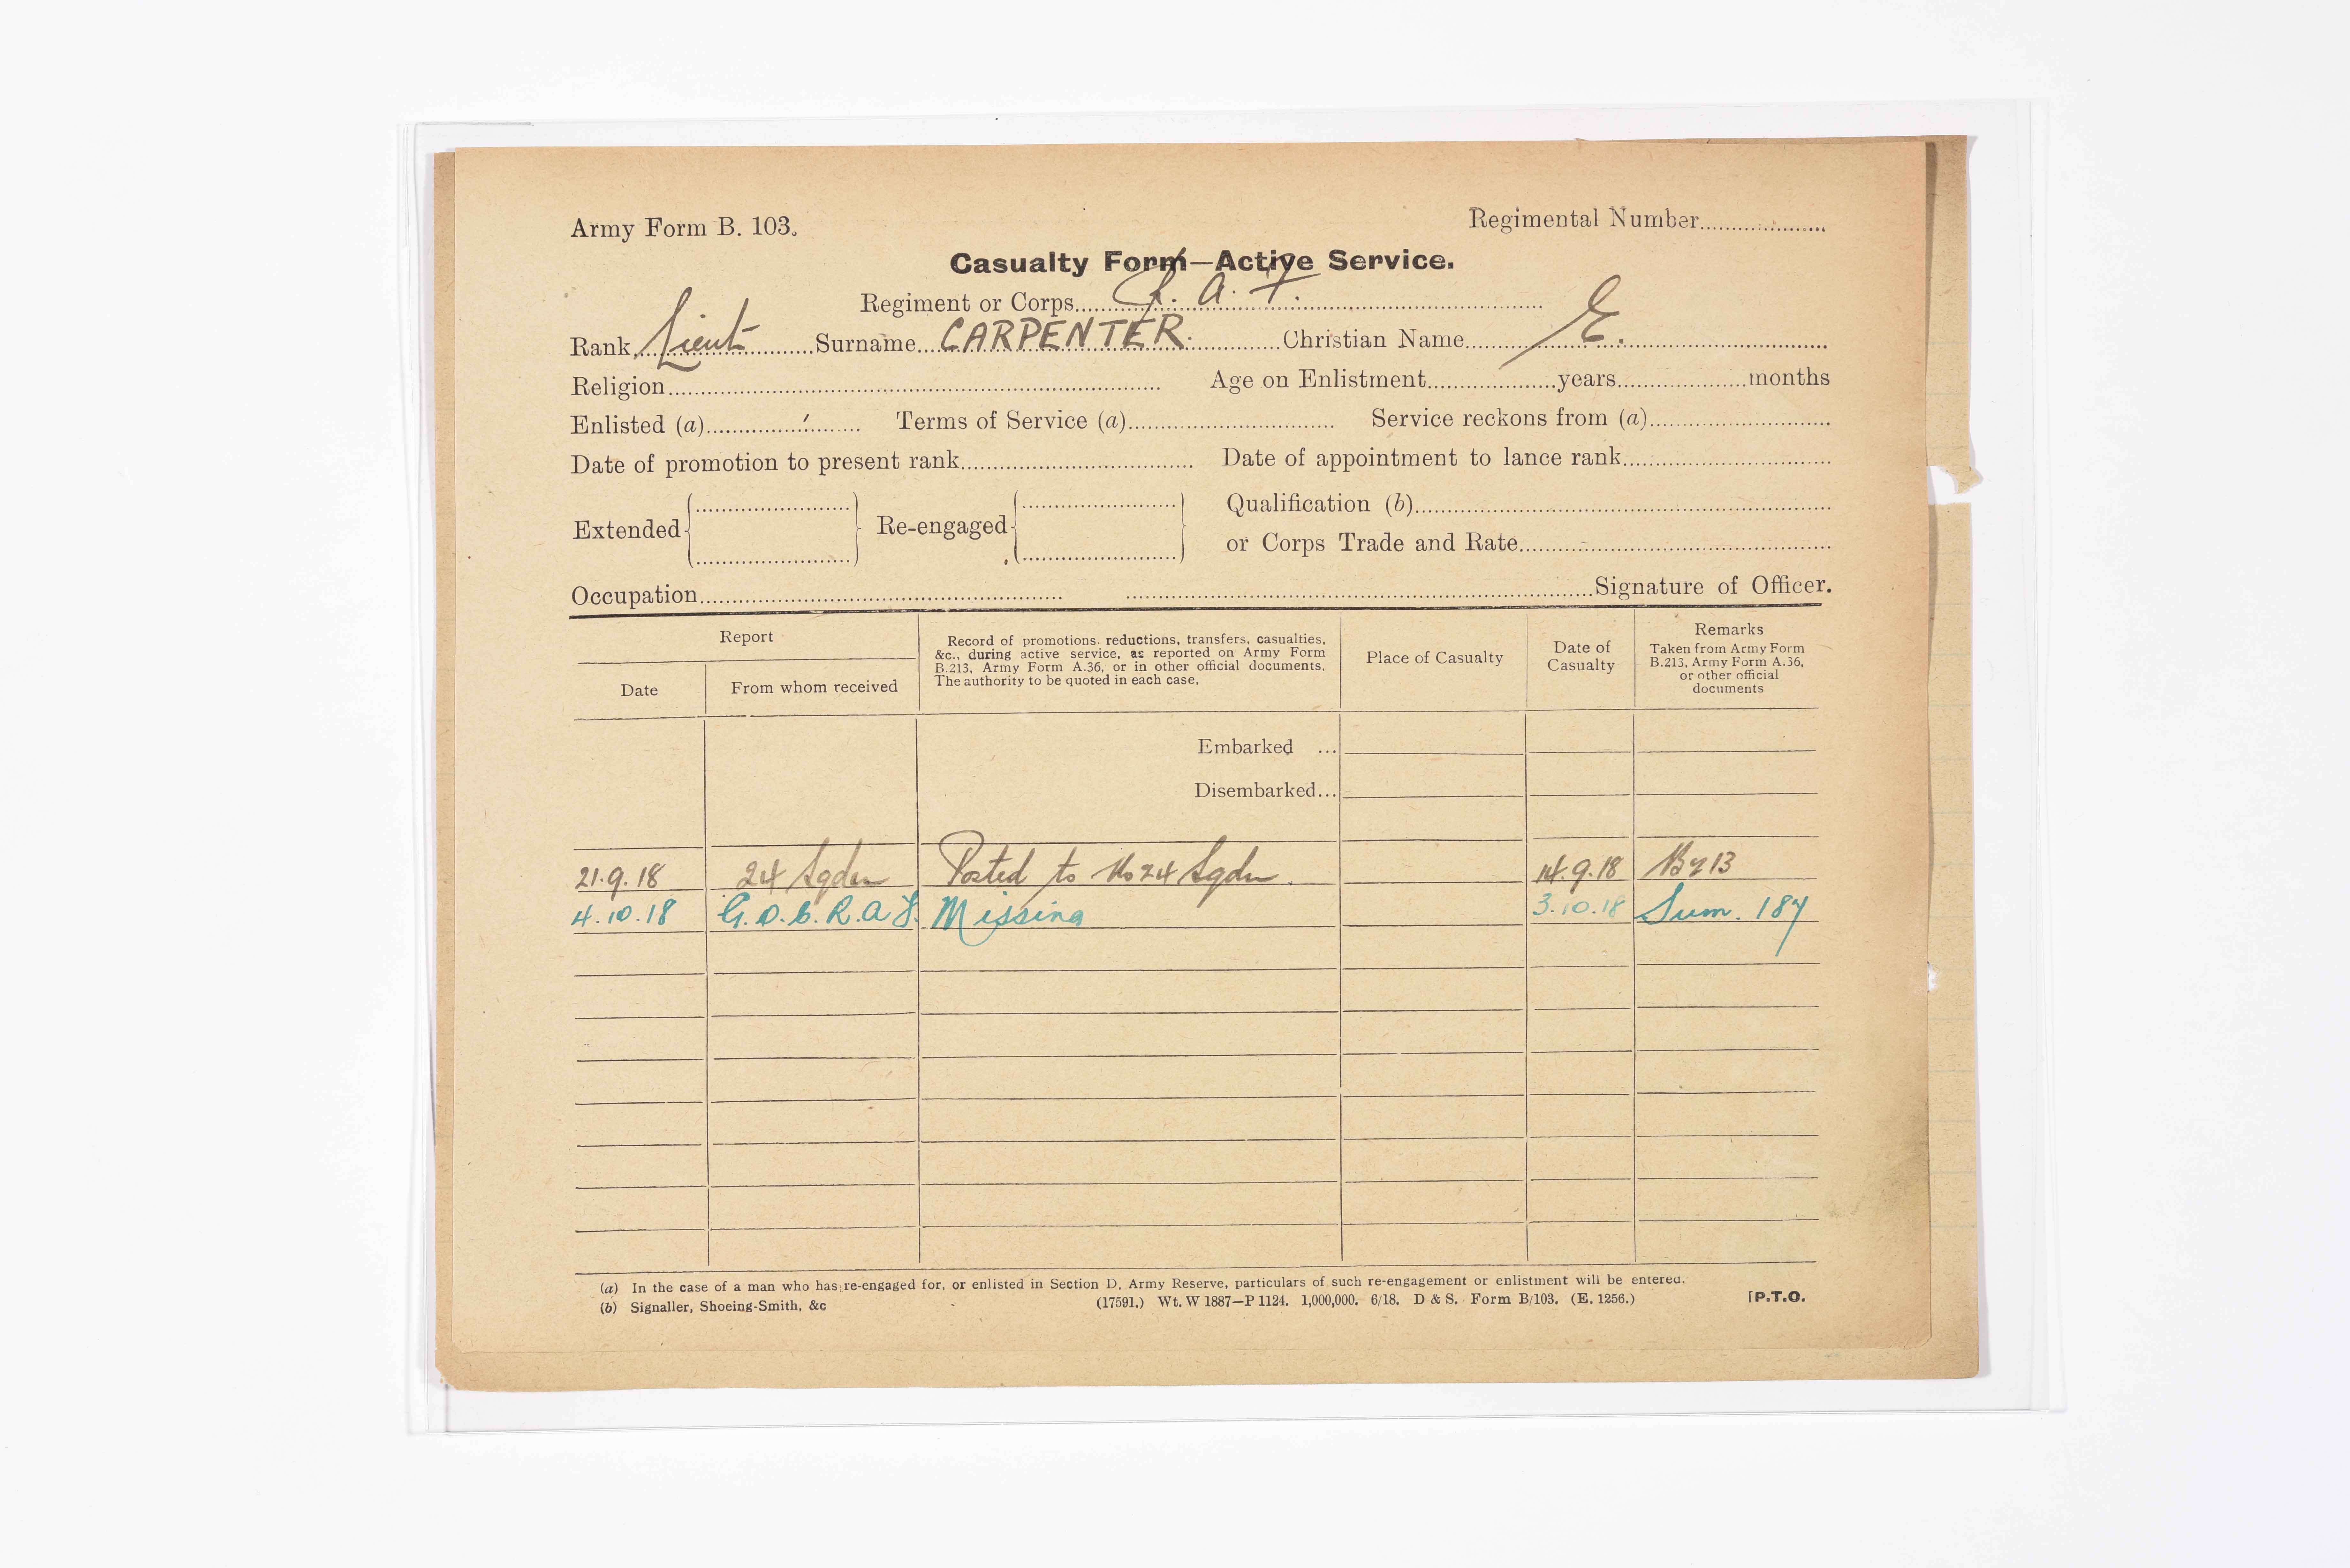 Army Form B. 103.
Regimental Number....................
Casualty Form—Active Service.
Regiment or Corps.... R. A. F. ....
Rank Lieut Surname CARPENTER. Christian Name E.
Religion.................... Age on Enlistment....................years....................months
Enlisted (a).................... Terms of Service (a).................... Service reckons from (a)....................
Date of promotion to present rank.................... Date of appointment to lance rank....................
Extended Re-engaged Qualification (b)....................
or Corps Trade and Rate....................
Occupation.................... ....................Signature of Officer.
Report
Date
From whom received
Record of promotions, reductions, transfers, casualties,
&c., during active service, as reported on Army Form
B.213, Army Form A.36, or in other official documents.
The authority to be quoted in each case.
Place of Casualty
Date of
Casualty
Remarks
Taken from Army Form
B.213, Army Form A.36,
or other official
documents
Embarked ...
Disembarked...
21.9.18 24 Sqdn Posted to No 24 Sqdn. 14.9.18 B213
4.10.18 G.O.C. R.A.F. Missing 3.10.18 Sum. 187
(a) In the case of a man who has re-engaged for, or enlisted in Section D, Army Reserve, particulars of such re-engagement or enlistment will be entered.
(b) Signaller, Shoeing-Smith, &c (17591.) Wt. W 1887—P 1124. 1,000,000. 6/18. D & S. Form B/103. (E. 1256.) [P.T.O.